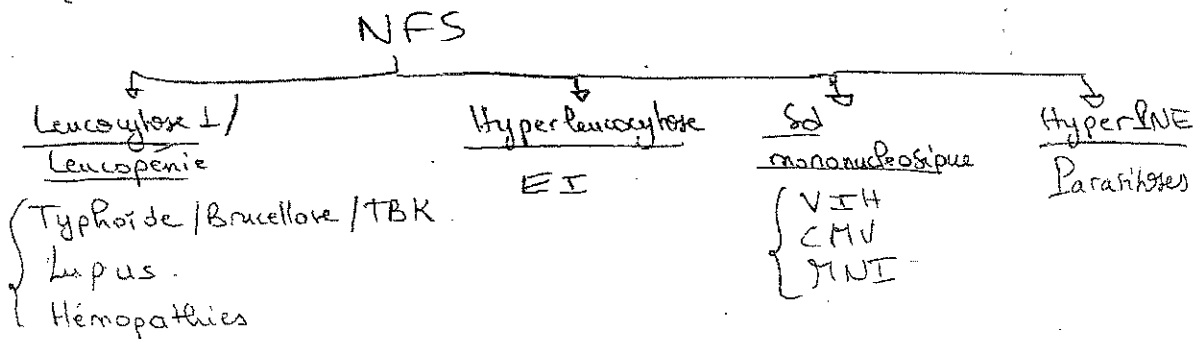 NFS
Leucocytose ⊥/
Leucopénie
Typhoïde/Brucellose/TBK.
Lupus.
Hémopathies
Hyperleucocytose
EI
Sd
mononucléosique
VIH
CMV
MNI
HyperPNE
Parasitoses